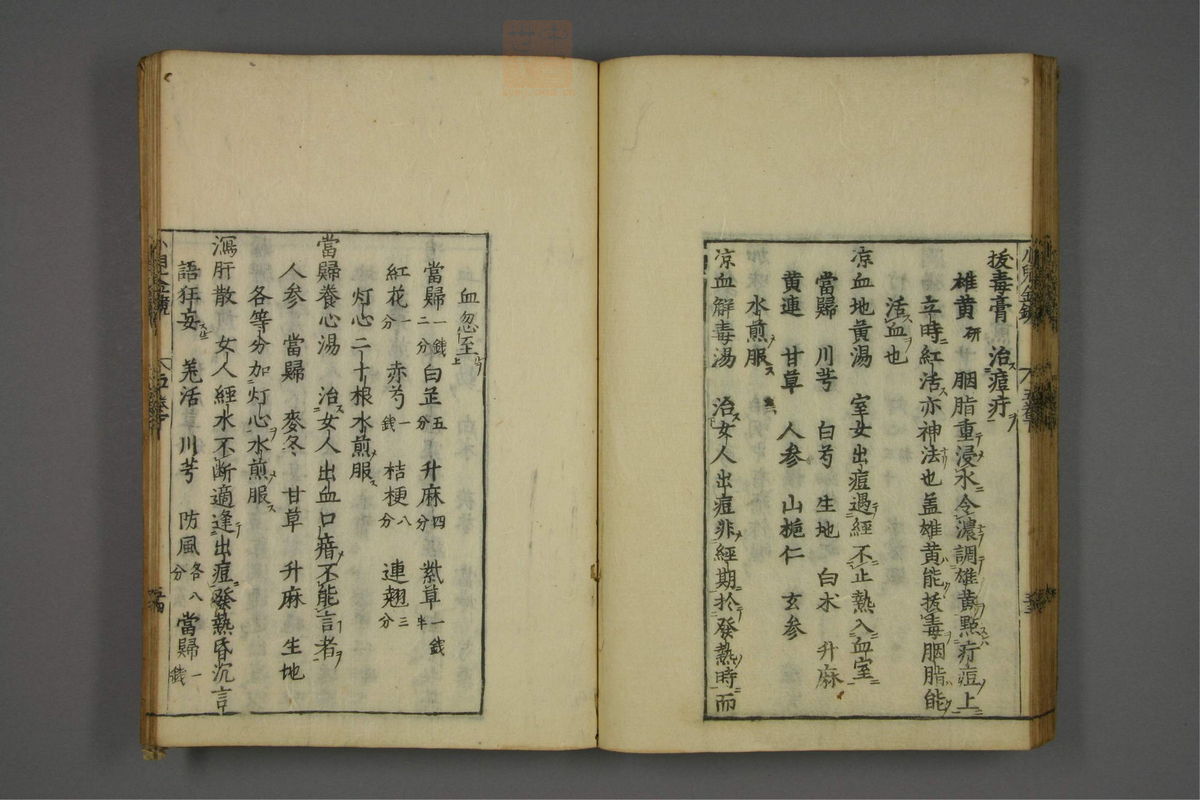 拔毒膏 治痘疔
雄黄研 胭脂重浸水令濃調雄黄點疔痘上
立時紅活亦神法也盖雄黄能拔毒胭脂能
活血也
凉血地黄湯 室女出痘遇經不止熱入血室
當歸 川芎 白芍 生地 白朮 升麻
黄連 甘草 人参 山梔仁 玄参
水煎服
凉血解毒湯 治女人出痘非經期於發熱時而
血忽至
當歸一錢二分 白芷五分 升麻四分 紫草一錢半
紅花一分 赤芍一錢 桔梗八分 連翹三分
灯心二十根水煎服
當歸養心湯 治女人出血口瘖不能言者
人参 當歸 麥冬 甘草 升麻 生地
各等分加灯心水煎服
瀉肝散 女人經水不断適逢出痘發熱昏沉言
語狂妄 羗活 川芎 防風各八分 當歸一錢